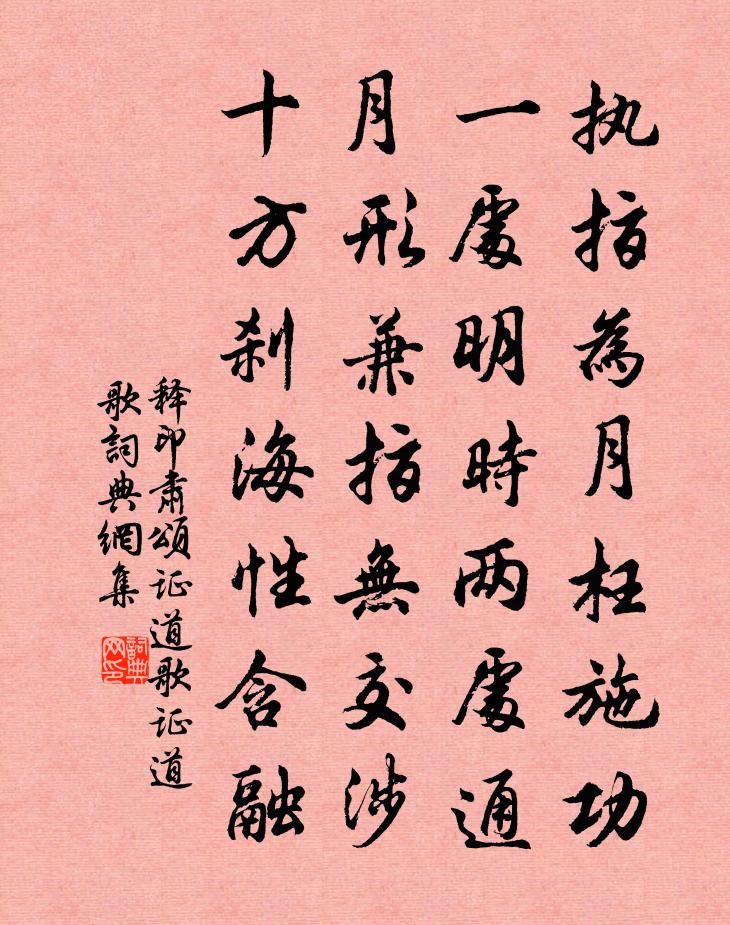 执指為月枉施功
一處明時两處通
月形兼指無交涉
十方刹海性含融
释印肅頌证道歌证道
歌詞典網集
詞典网印